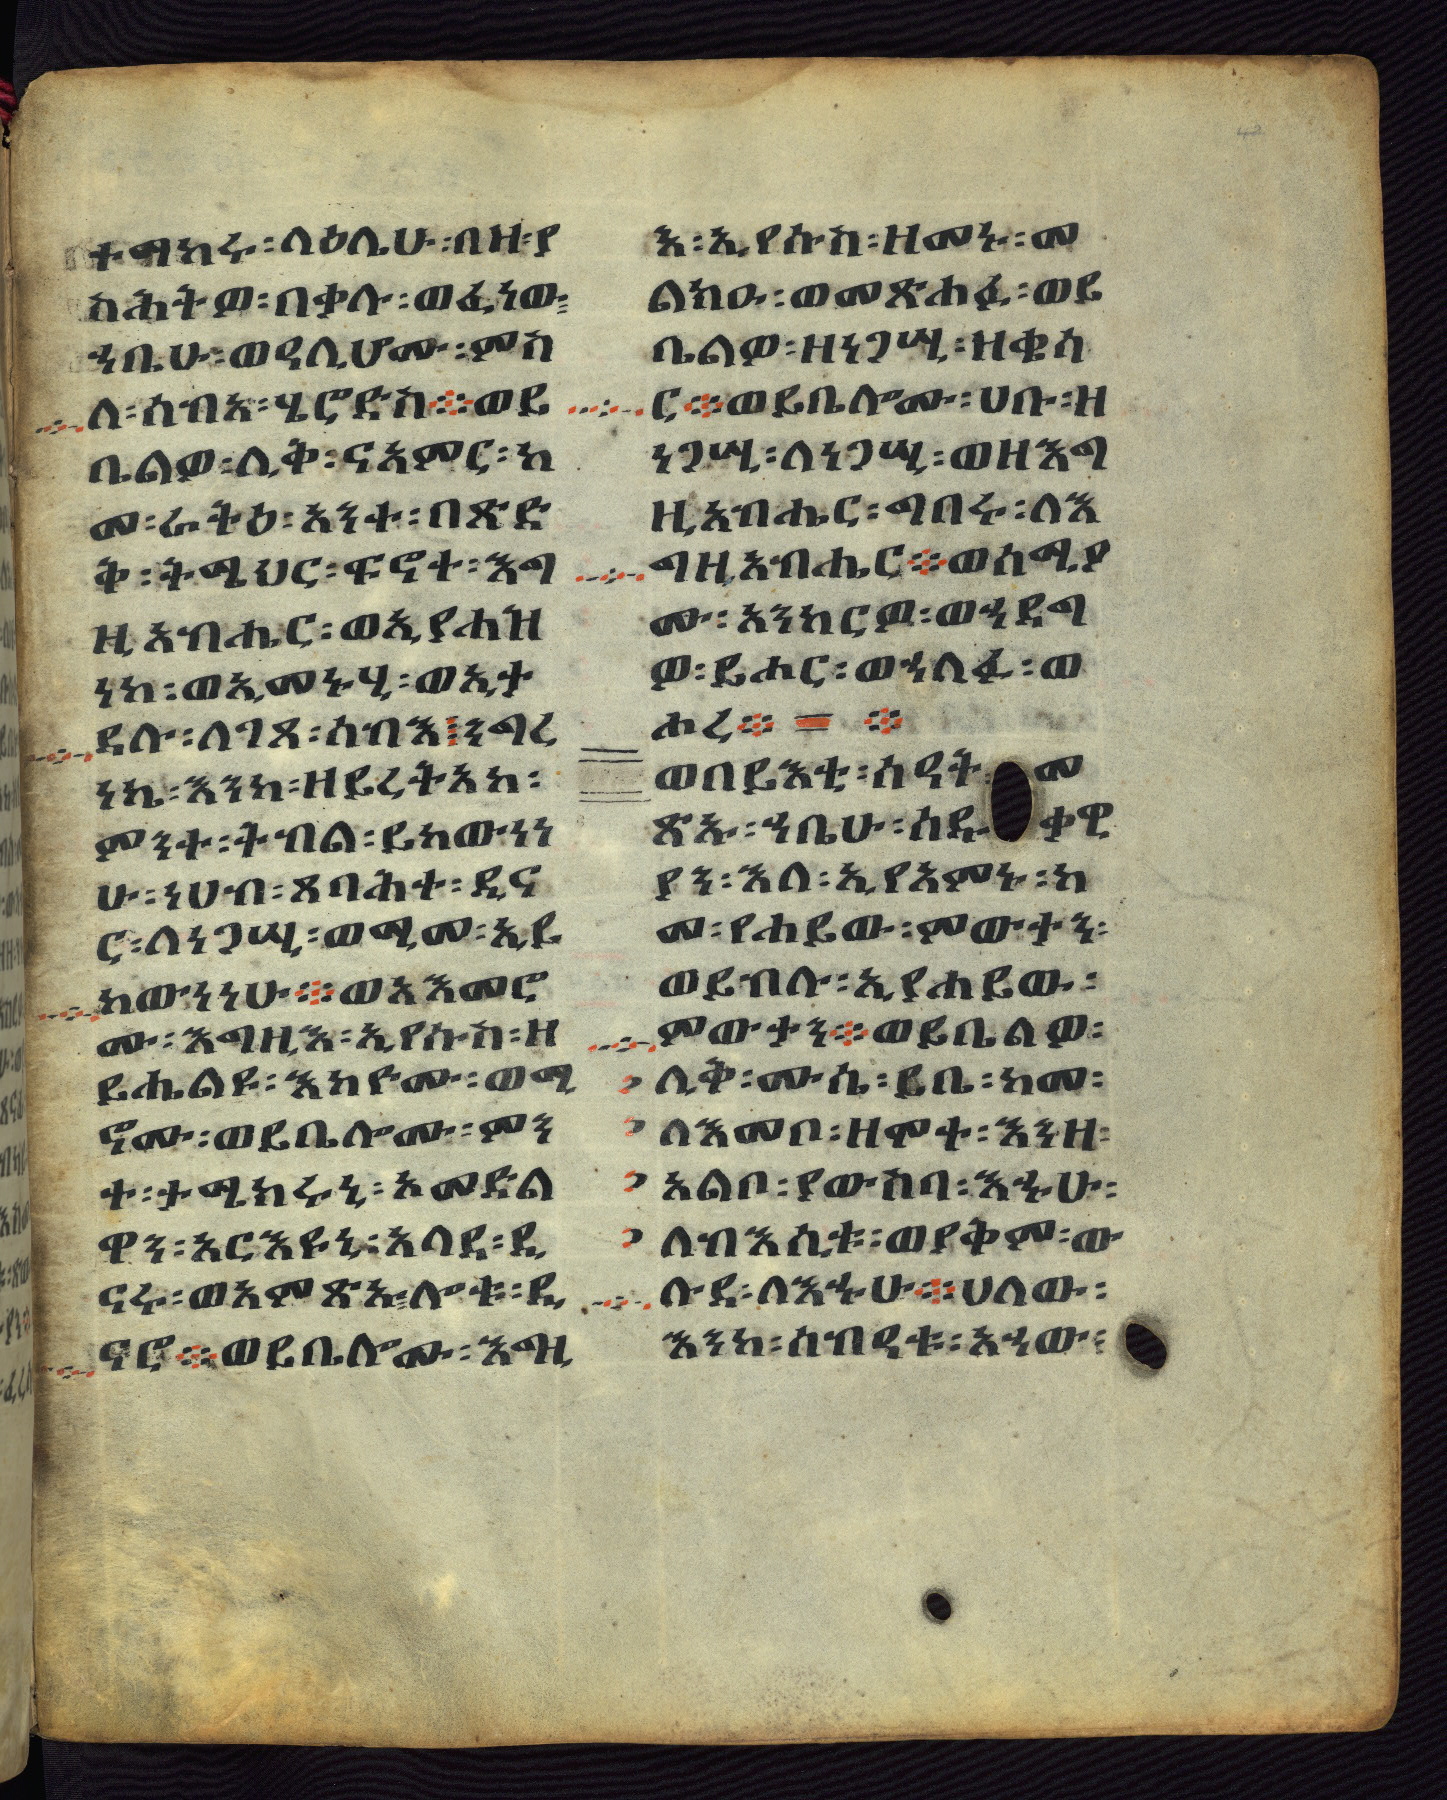 ተማከሩ፡ላዕሌሁ፡በዘ፡ያ
ስሕትዎ፡በቃሉ፡ወፈነው፡
ኀቤሁ፡ወዳሊሆሙ፡ምስ
ለ፡ሰብአ፡ሄሮድስ፨ወይ
ቤልዎ፡ሊቅ፡ናአምር፡ከ
መ፡ራትዕ፡አንተ፡በጽድ
ቅ፡ትሜህር፡ፍኖተ፡እግ
ዚአብሔር፡ወኢያሐዝ
ነከ፡ወኢመኑሂ፡ወኢት
ዴሉ፡ለገጸ፡ሰብእ፧ንግረ
ነኬ፡እንከ፡ዘይረትአከ፡
ምንተ፡ትብል፡ይከውነነ
ሁ፡ነሀብ፡ጸባሕተ፡ዲና
ር፡ለነጋሢ፡ወሚመ፡ኢይ
ከውነነሁ፨ወአእመሮ
ሙ፡እግዚእ፡ኢየሱስ፡ዘ
ይሔልዩ፡እከዮሙ፡ወማ
ኖሙ፡ወይቤሎሙ፡ምን
ተ፡ታሜክሩኒ፡አመድል
ዋን፡አርእዩኒ፡አላደ፡ዲ
ናሩ፡ወአምጽኡ፡ሎቱ፡ዲ
ናሮ፨ወይቤሎሙ፡እግዚ
እ፡ኢየሱስ፡ዘመኑ፡መ
ልክዑ፡ወመጽሐፉ፡ወይ
ቤልዎ፡ዘነጋሢ፡ዘቄሳ
ር፨ወይቤሎሙ፡ሀቡ፡ዘ
ነጋሢ፡ለነጋሢ፡ወዘእግ
ዚአብሔር፡ግበሩ፡ለእ
ግዚአብሔር፨ወሰሚያ
ሙ፡አንከርዎ፡ወኀደግ
ዎ፡ይሐር፡ወኀለፉ፡ወ
ሐረ፨ ፨
ወበይእቲ፡ሰዓት፡መ
ጽኡ፡ኀቤሁ፡ሰዱቃዊ
ያን፡እለ፡ኢየአምኑ፡ከ
መ፡የሐይው፡ምውታን፡
ወይብሉ፡ኢያሐይው፡
ምውታን፨ወይቤልዎ፡
ሊቅ፡ሙሴ፡ይቤ፡ከመ፡
ለእመቦ፡ዘሞተ፡እንዘ፡
አልቦ፡ያውስባ፡እኁሁ፡
ለብእሲቱ፡ወያቅም፡ው
ሉደ፡ለእኁሁ፨ሀለው፡
እንከ፡ሰብዓቱ፡አኀው፡